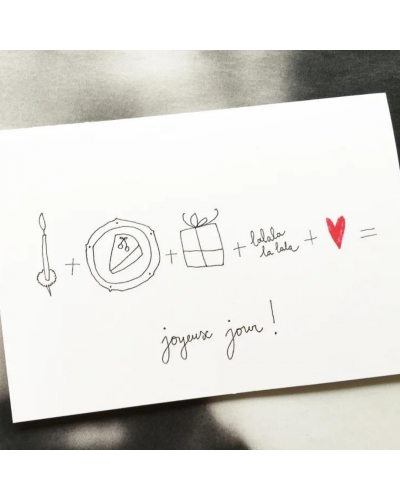 + + + lalala + =
la lala
joyeux jour !